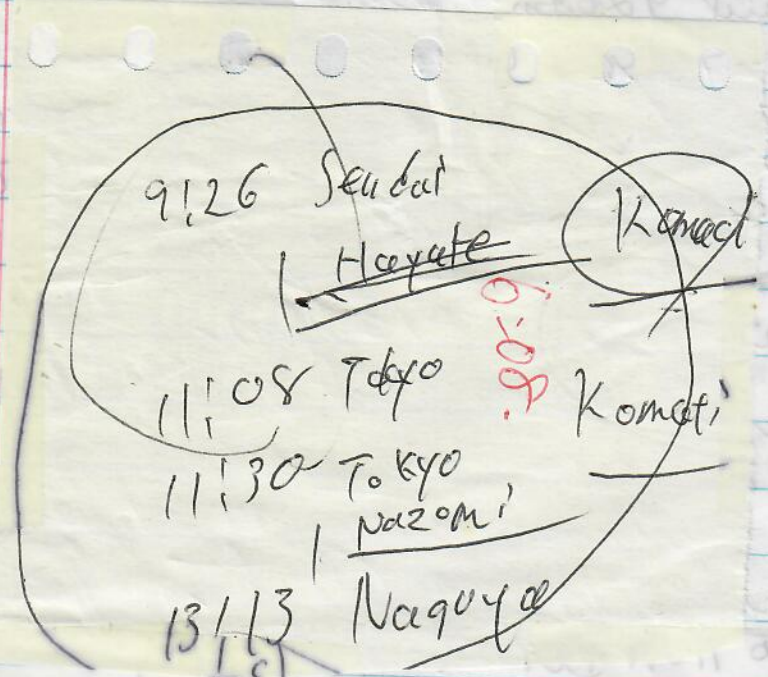 9:26 Sendai
Hayate
Komach
11:08 Tokyo
Komati
11:30 Tokyo
Nozomi
13:13 Nagoya